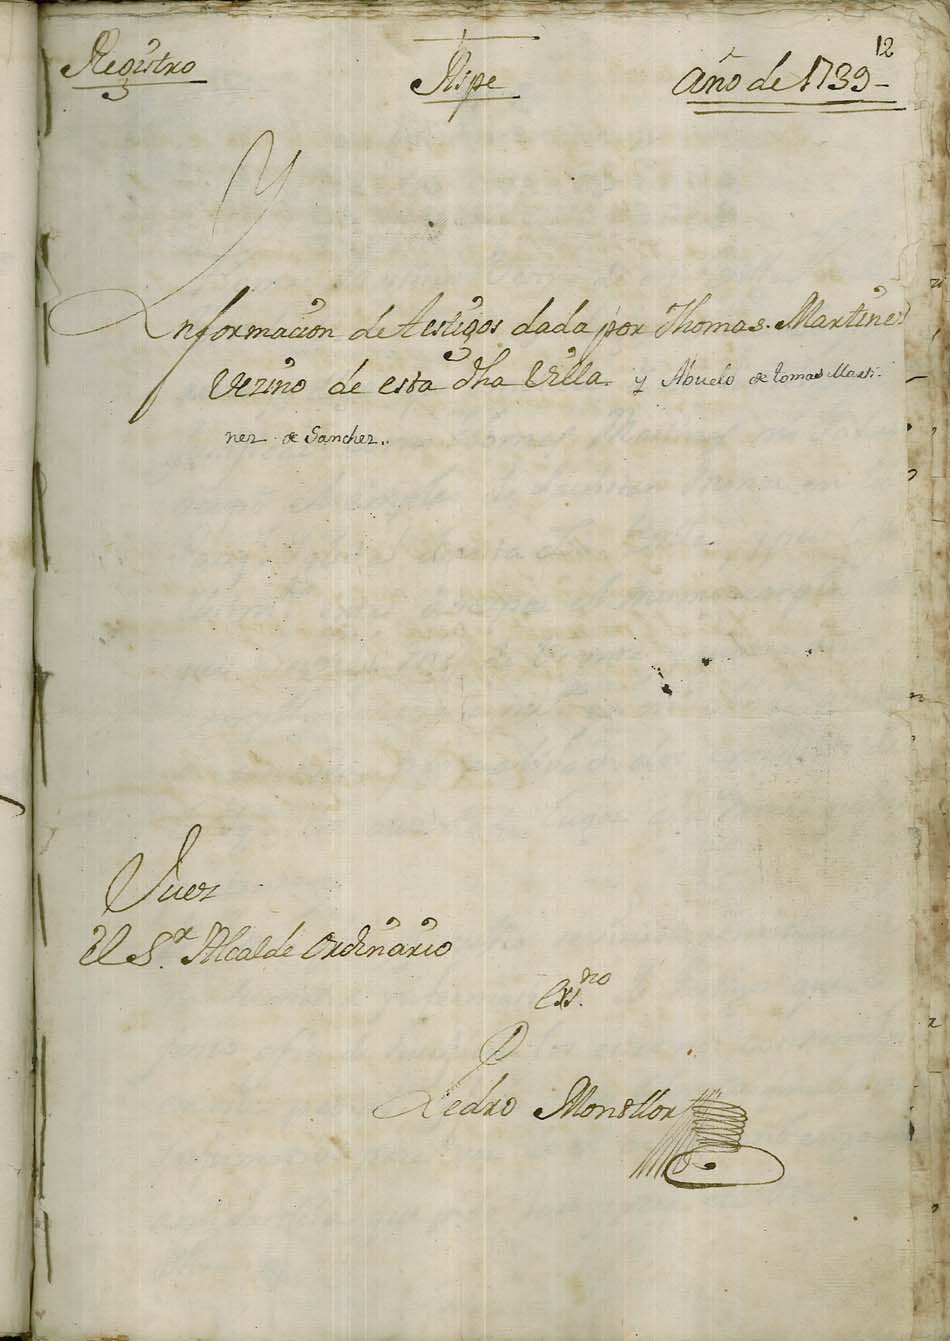 12
Registro Xipe Año de 1739
Ynformacion de testigos dada por Thomas Martinez
Vezino de esta dha Villa y Abuelo de Tomas Marti-
nez de Sanchez..
Juez
El S.r Alcalde Ordinario
Ess.no
Pedro Monllor